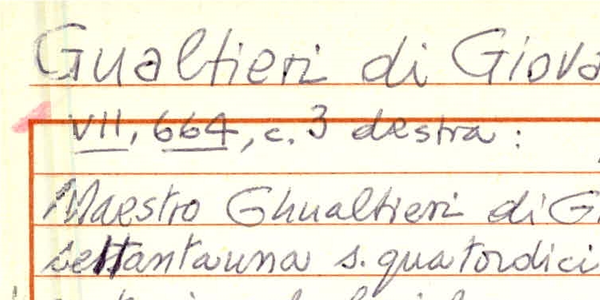 Gualtieri di Giova
VII, 664, c. 3 destra :
Maestro Ghualtieri di Gi
settantauna s. quatordici